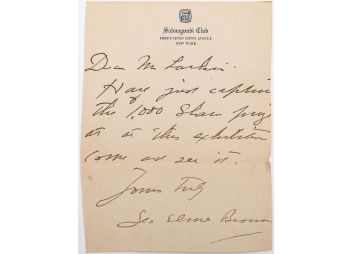 Salmagundi Club
FORTY-SEVEN FIFTH AVENUE
NEW YORK
Dear Mr Larkin.
Have just captured
the $1,000 Shaw prize
at this exhibition
Come and see it.
Yours Truly
Geo Elmer Browne